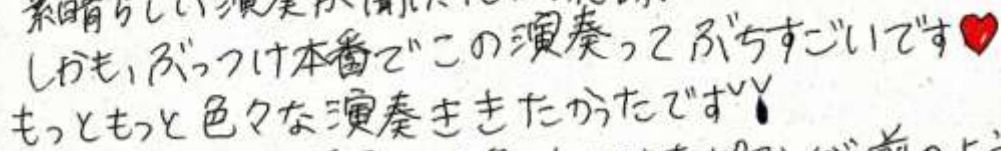 素晴らしい演奏が
しかも、ぶっつけ本番でこの演奏ってぶちすごいです♥
もっともっと色々な演奏ききたかったです